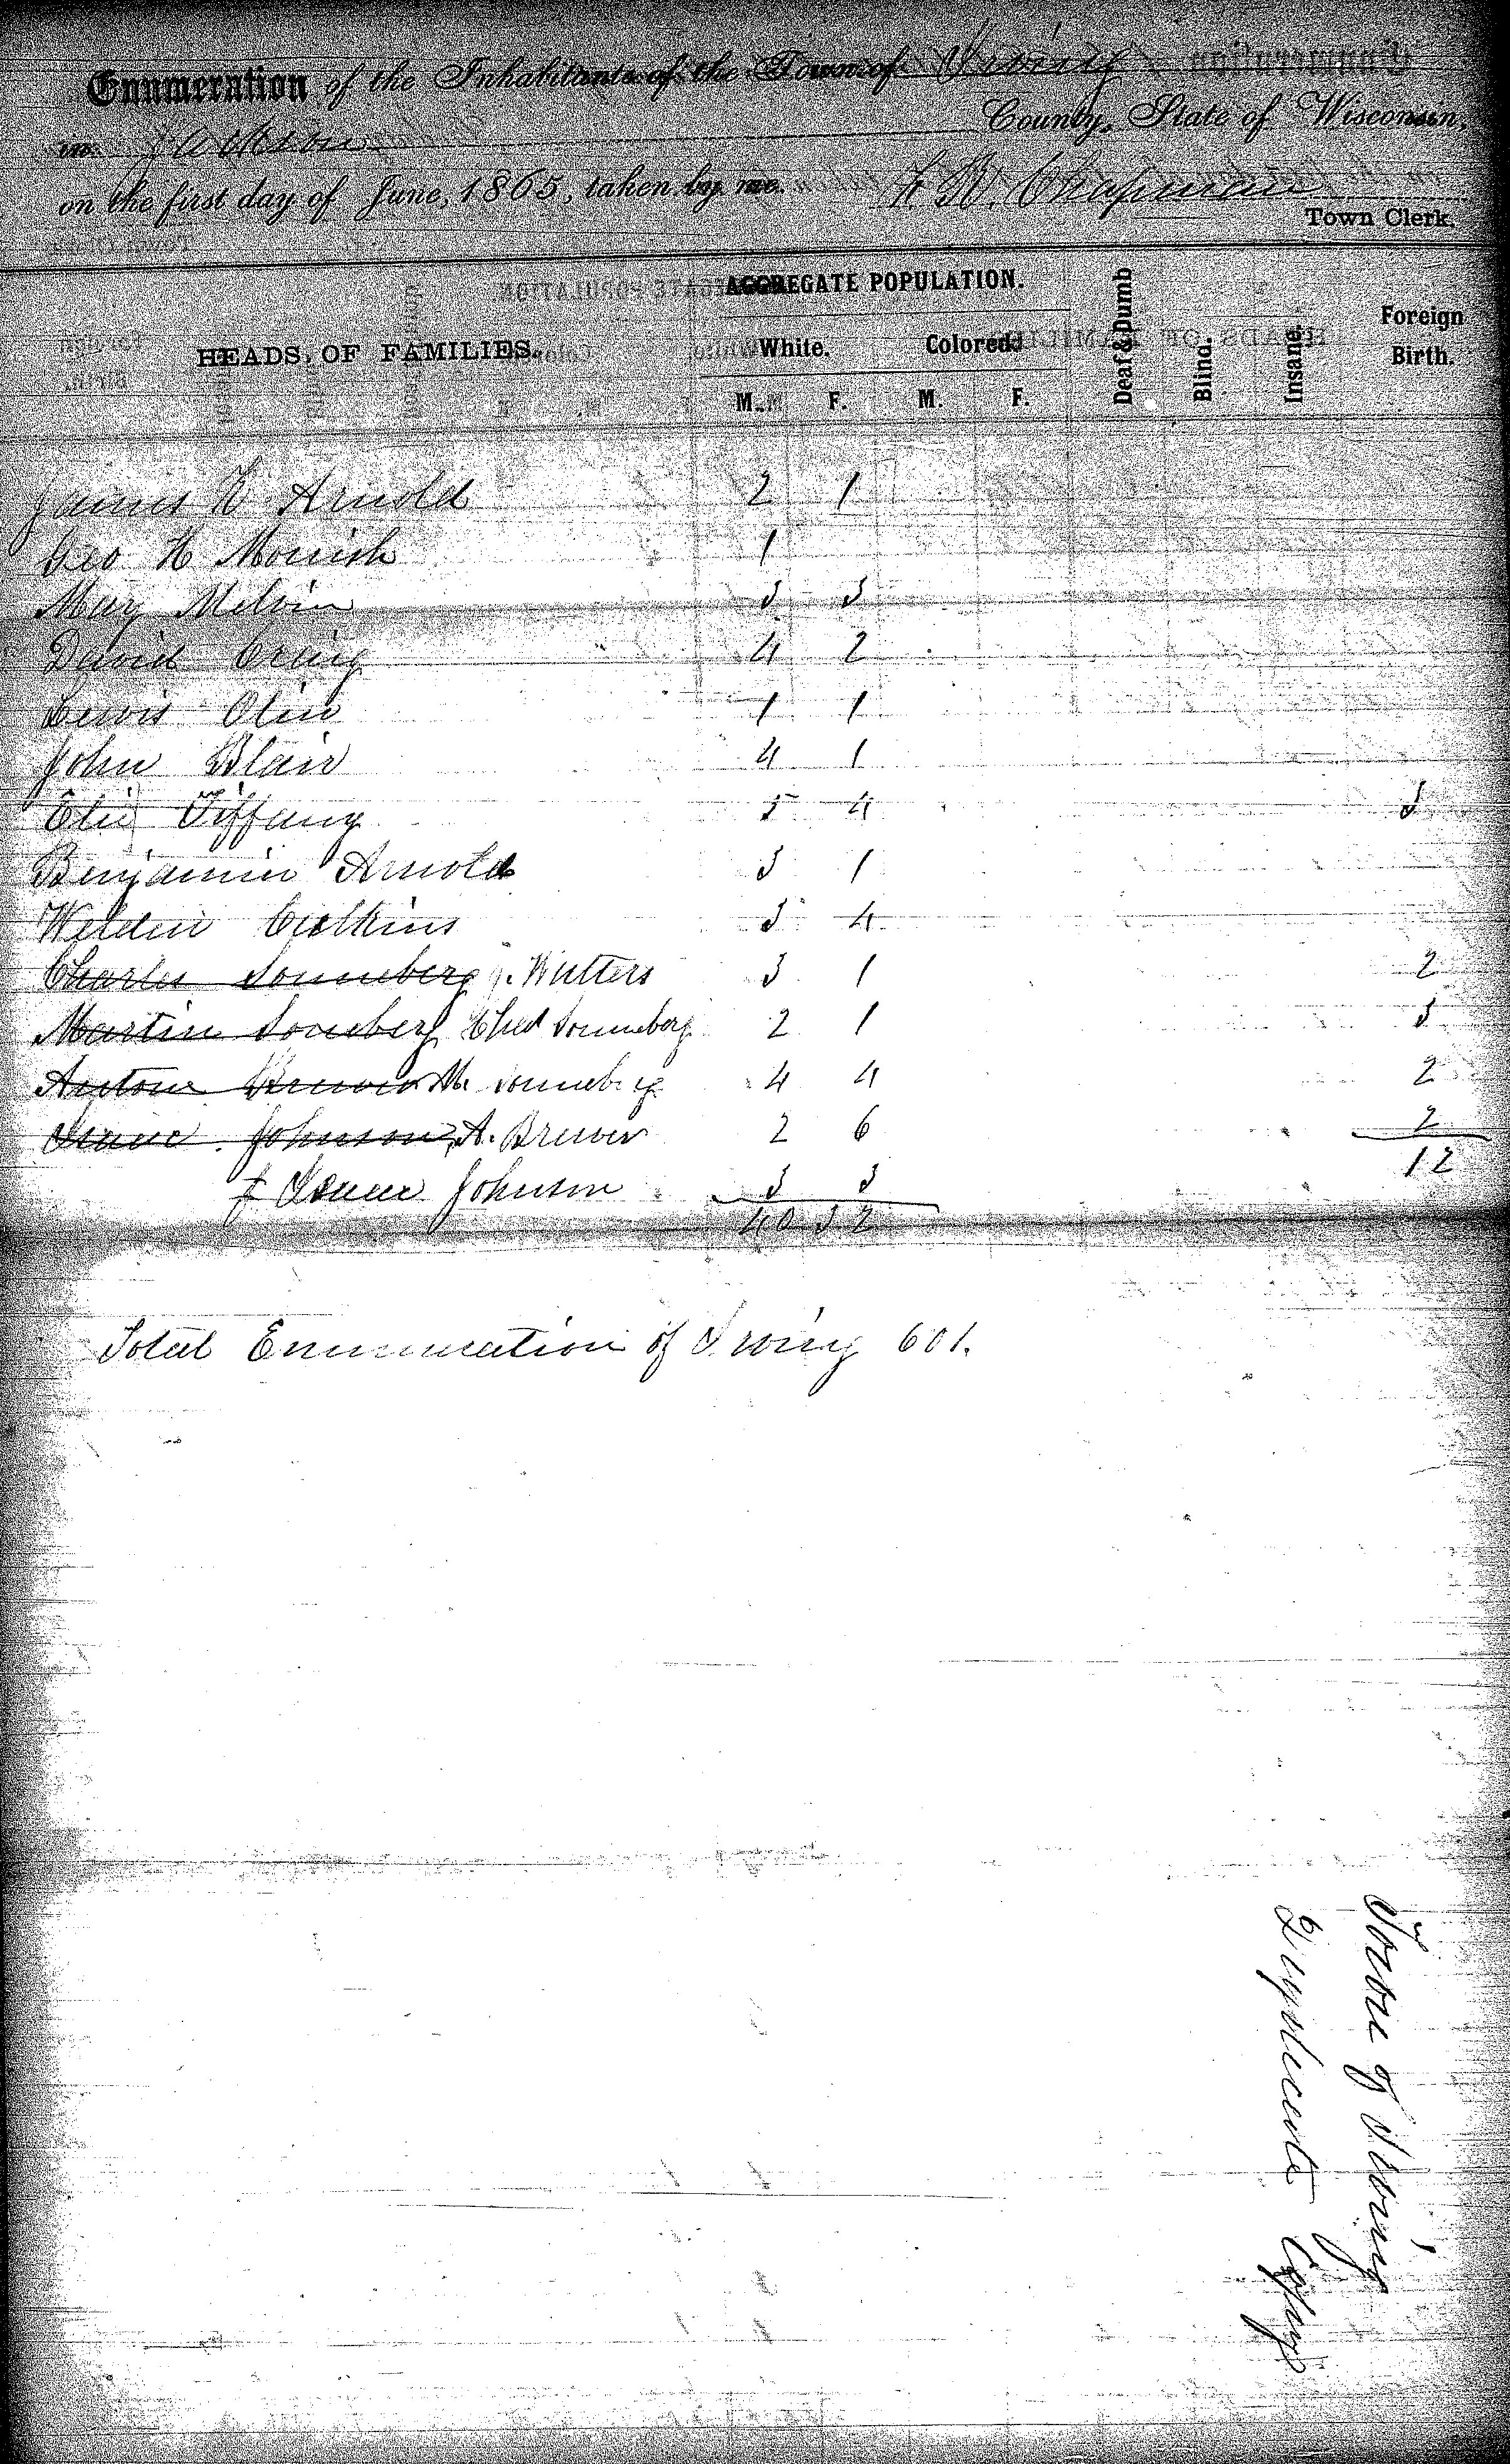 Enumeration of the Inhabitants of the Town of Irving
in Jackson County, State of Wisconsin,
on the first day of June, 1865, taken by me. Chapman
Town Clerk.
AGGREGATE POPULATION.
HEADS OF FAMILIES. White. Colored. Deaf & Dumb Blind. Insane. Foreign Birth.
M. F. M. F.
James Arnold 2 1
Geo H Monish 1
Mary Melvin 3 3
David Craig 4 2
Lewis Olin 1 1
John Blair 4 1
Tiffany 5 4 3
Benjamin Arnold 3 1
3 4
Charles Sonneberg J. Watters 3 1 2
Martin Sonneberg Chas Sonneberg 2 1 3
Antone Brewer M. Sonneberg 4 4 2
Isaac Johnson, A. Brewer 2 6 2
Isaac Johnson 3 3 12
40 32
Total Enumeration of Irving 601.
Town of Irving
Duplicate Copy